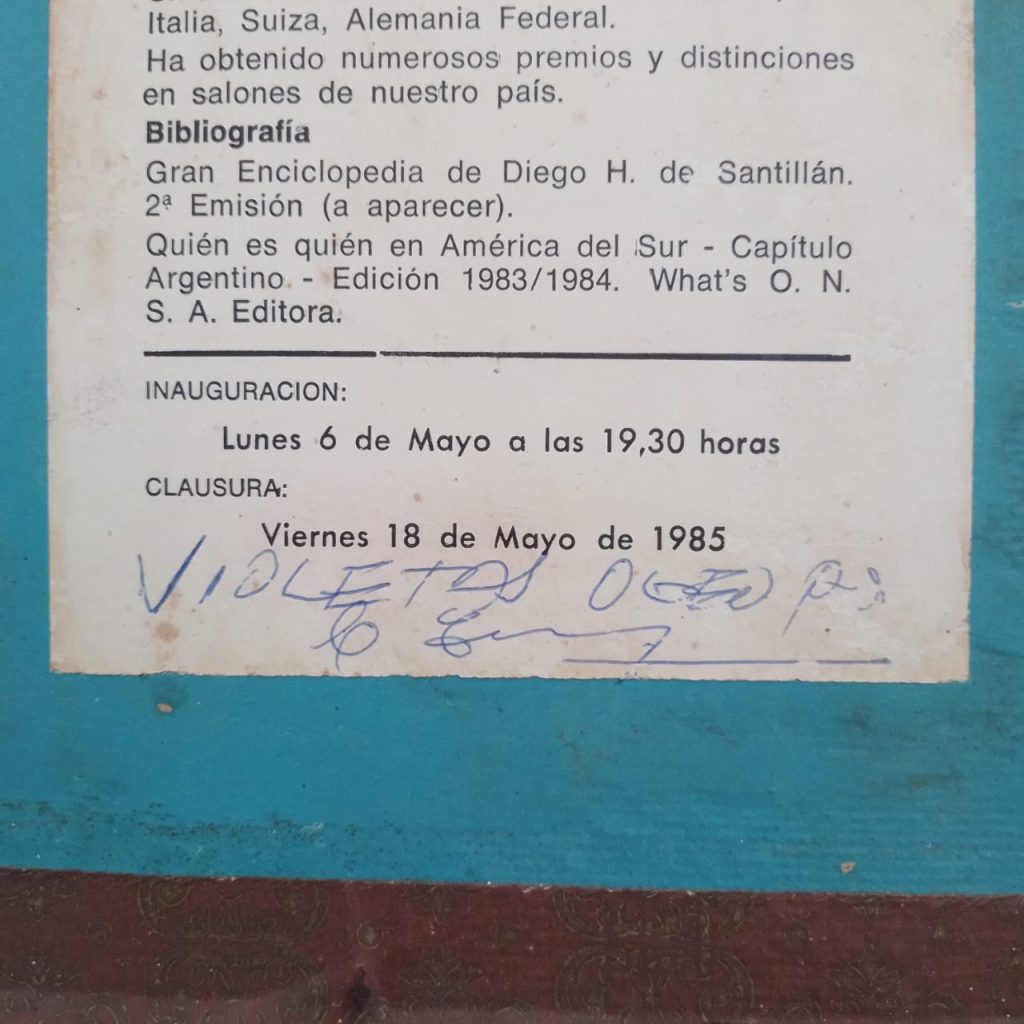 Italia, Suiza, Alemania Federal.
Ha obtenido numerosos premios y distinciones
en salones de nuestro país.
Bibliografía
Gran Enciclopedia de Diego H. de Santillán.
2ª Emisión (a aparecer).
Quién es quién en América del Sur - Capítulo
Argentino - Edición 1983/1984. What's O. N.
S. A. Editora.
INAUGURACION:
Lunes 6 de Mayo a las 19,30 horas
CLAUSURA:
Viernes 18 de Mayo de 1985
VIOLETAS